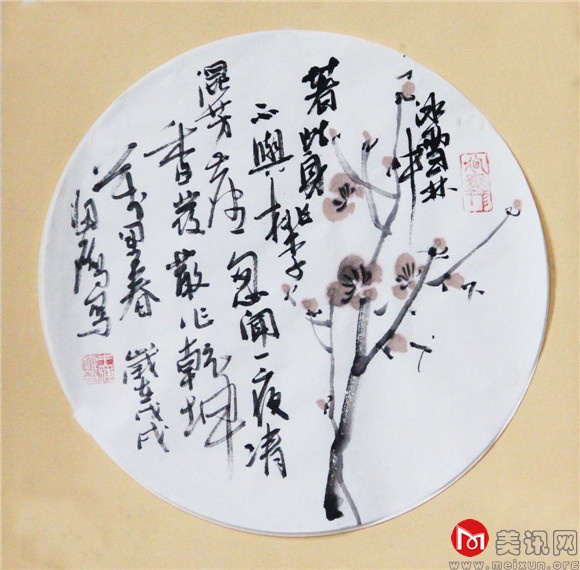 冰雪林中
著此身
不與桃李
混芳塵忽聞一夜清
香發散作乾坤
萬里春歲在戊戌
寫
美讯网
www.meixun.org